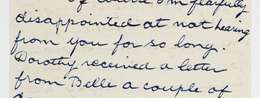 I'm fearfully
disappointed at not hearing
from you for so long.
Dorothy received a letter
from Belle a couple of